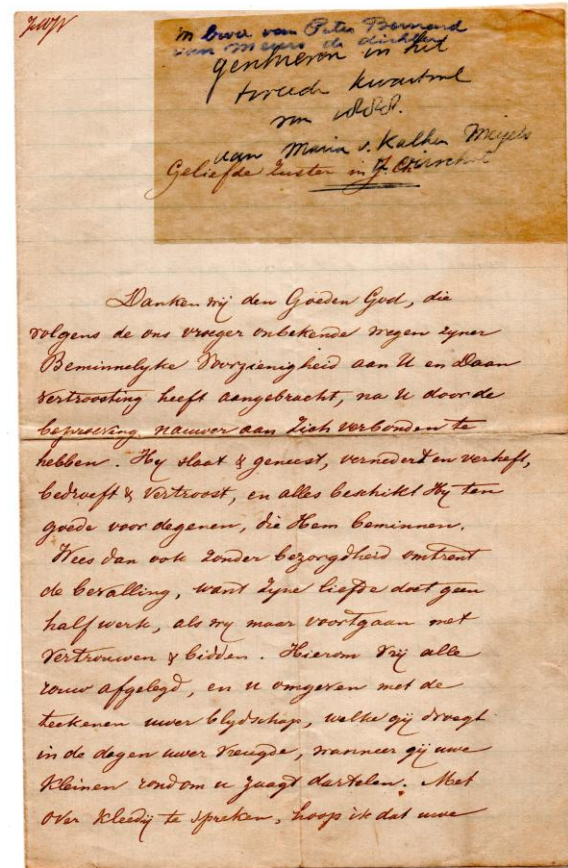 JMJ
'n brief van Pater Bernard
van Meyers de dichter
geschreven in het
tweede kwartaal
van 1888.
aan Maria v. Kalken Meyers
Geliefde Zuster in J. Ch. Oirschot
Danken wij den Goeden God, die
volgens de ons vroeger onbekende wegen zyner
Beminnelyke Voorzienigheid aan U en Daan
vertroosting heeft aangebracht, na U door de
beproeving nauwer aan Zich verbonden te
hebben. Hy slaat & geneest, vernedert en verheft,
bedroeft & vertroost, en alles beschikt Hy ten
goede voor degenen, die Hem beminnen.
Wees dan ook zonder bezorgdheid omtrent
de bevalling, want Zyne liefde doet geen
half werk, als wy maar voortgaan met
vertrouwen & bidden. Hierom vrij alle
rouw afgelegd, en u omgeven met de
teekenen uwer blydschap, welke gij droegt
in de dagen uwer vreugde, wanneer gij uwe
kleinen rondom u zaagt dartelen. Met
over kledij te spreken, hoop ik dat uwe